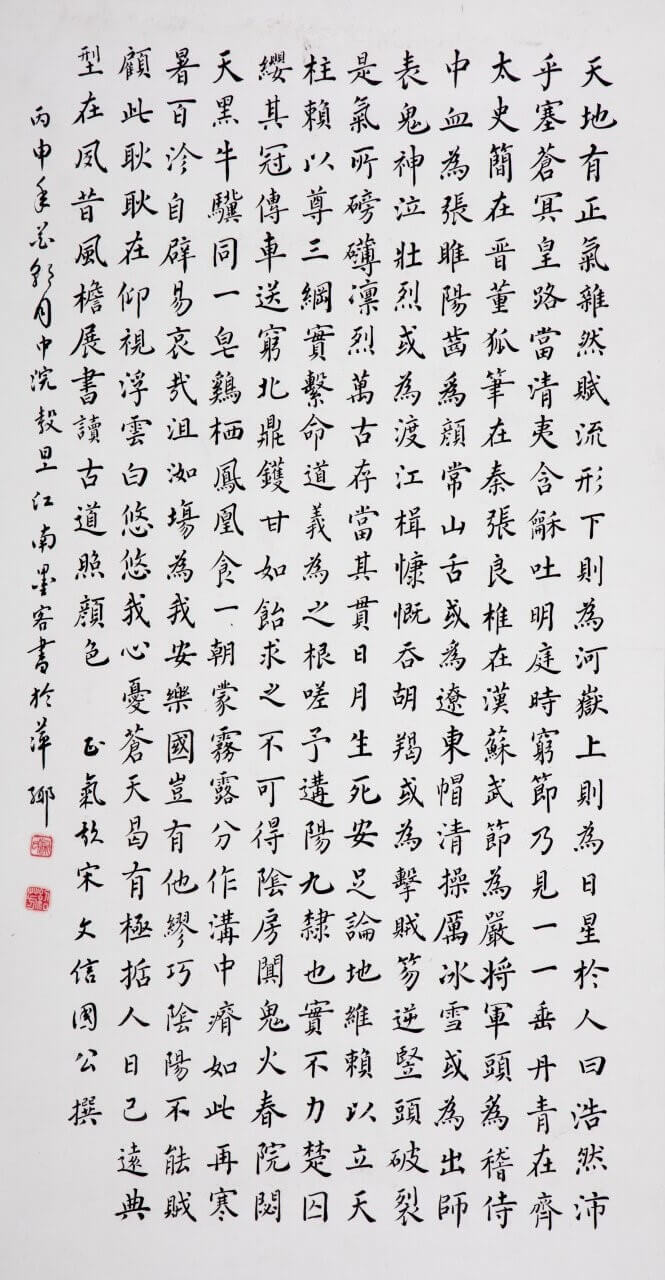 天地有正氣雜然賦流形下則為河嶽上則為日星於人曰浩然沛
乎塞蒼冥皇路當清夷含龢吐明庭時窮節乃見一一垂丹青在齊
太史簡在晉董狐筆在秦張良椎在漢蘇武節為嚴將軍頭為稽侍
中血為張睢陽齒為顏常山舌或為遼東帽清操厲冰雪或為出師
表鬼神泣壯烈或為渡江楫慷慨吞胡羯或為擊賊笏逆豎頭破裂
是氣所磅礴凛烈萬古存當其貫日月生死安足論地維賴以立天
柱賴以尊三綱實繫命道義為之根嗟予遘陽九隸也實不力楚囚
纓其冠傳車送窮北鼎鑊甘如飴求之不可得陰房闃鬼火春院閟
天黑牛驥同一皂鷄栖鳳凰食一朝蒙霧露分作溝中瘠如此再寒
暑百沴自辟易哀哉沮洳場為我安樂國豈有他繆巧陰陽不能賊
顧此耿耿在仰視浮雲白悠悠我心憂蒼天曷有極哲人日已遠典
型在夙昔風檐展書讀古道照顏色 正氣歌宋文信國公撰
丙申年月中浣穀旦江南墨客書於萍鄉